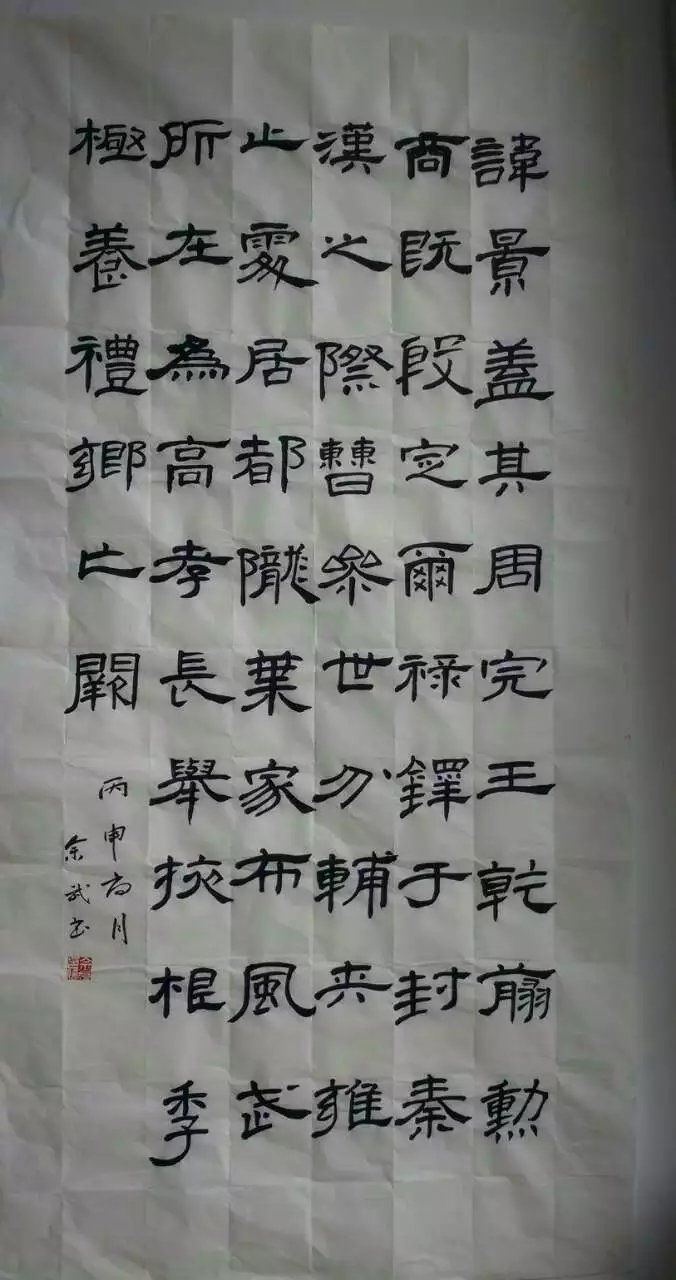 諱景蓋其周完王乾翦勳
商既殷定爾祿鐸于封秦
漢之際曹參世勿輔夾雍
止處居都隴葉家布風武
所在為高孝長舉掖根季
極養禮鄉亡闕
丙申月
余武书